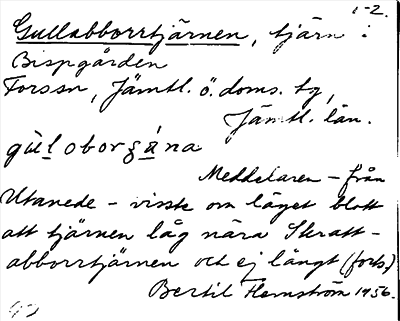 1-2.
Gullabborrtjärnen, tjärn i
Bispgården
Forssn, Jämtl. ö. doms. tg,
Jämtl. län.
Meddelaren – från
Utanede – visste om läget blott
att tjärnen låg nära Skratt-
abborrtjärnen och ej långt (forts.)
Bertil Flemström 1956.